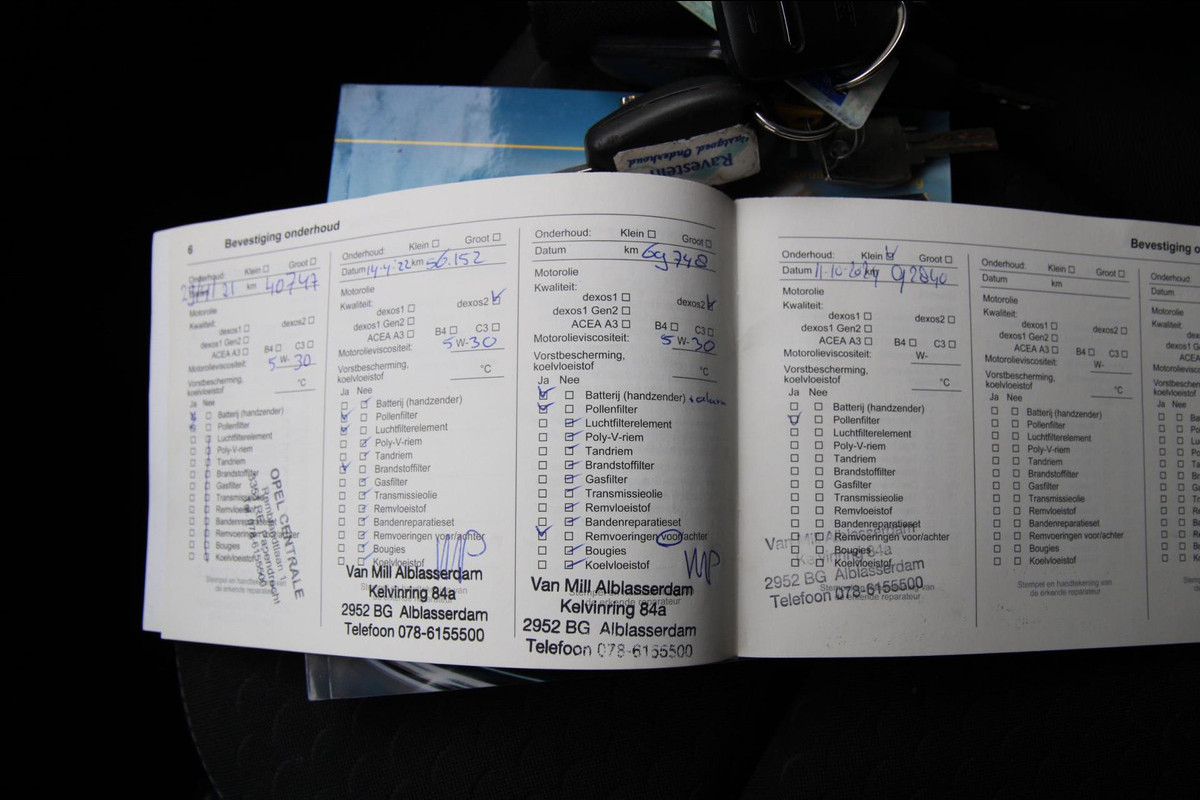 Ravestein
Vastgoed Onderhoud
6 Bevestiging onderhoud
Onderhoud: Klein Groot
21 40747
Motorolie
Kwaliteit:
dexos1 dexos2
dexos1 Gen2
ACEA A3 B4 C3
Motorolieviscositeit: 5 W- 30
Vorstbescherming,
koelvloeistof °C
Ja Nee
Batterij (handzender)
Pollenfilter
Luchtfilterelement
Poly-V-riem
Tandriem
Brandstoffilter
Gasfilter
Transmissieolie
Remvloeistof
Bandenreparatieset
Remvoeringen voor/achter
Bougies
Koelvloeistof
Stempel en handtekening van
de erkende reparateur
OPEL CENTRALE
Onderhoud: Klein Groot
Datum 14-4-'22 km 56.152
Motorolie
Kwaliteit:
dexos1 dexos2
dexos1 Gen2
ACEA A3 B4 C3
Motorolieviscositeit: 5 W- 30
Vorstbescherming,
koelvloeistof °C
Ja Nee
Batterij (handzender)
Pollenfilter
Luchtfilterelement
Poly-V-riem
Tandriem
Brandstoffilter
Gasfilter
Transmissieolie
Remvloeistof
Bandenreparatieset
Remvoeringen voor/achter
Bougies
Koelvloeistof
Van Mill Alblasserdam
Kelvinring 84a
2952 BG Alblasserdam
Telefoon 078-6155500
Onderhoud: Klein Groot
Datum km 69748
Motorolie
Kwaliteit:
dexos1 dexos2
dexos1 Gen2
ACEA A3 B4 C3
Motorolieviscositeit: 5 W- 30
Vorstbescherming,
koelvloeistof °C
Ja Nee
Batterij (handzender)
Pollenfilter
Luchtfilterelement
Poly-V-riem
Tandriem
Brandstoffilter
Gasfilter
Transmissieolie
Remvloeistof
Bandenreparatieset
Remvoeringen voor/achter
Bougies
Koelvloeistof
Van Mill Alblasserdam
Kelvinring 84a
2952 BG Alblasserdam
Telefoon 078-6155500
Bevestiging o
Onderhoud: Klein Groot
Datum 11-10-2024 km 92840
Motorolie
Kwaliteit:
dexos1 dexos2
dexos1 Gen2
ACEA A3 B4 C3
Motorolieviscositeit: W-
Vorstbescherming,
koelvloeistof °C
Ja Nee
Batterij (handzender)
Pollenfilter
Luchtfilterelement
Poly-V-riem
Tandriem
Brandstoffilter
Gasfilter
Transmissieolie
Remvloeistof
Bandenreparatieset
Remvoeringen voor/achter
Bougies
Koelvloeistof
Van Mill Alblasserdam
Kelvinring 84a
2952 BG Alblasserdam
Telefoon 078-6155500
Onderhoud: Klein Groot
Datum km
Motorolie
Kwaliteit:
dexos1 dexos2
dexos1 Gen2
ACEA A3 B4 C3
Motorolieviscositeit: W-
Vorstbescherming,
koelvloeistof °C
Ja Nee
Batterij (handzender)
Pollenfilter
Luchtfilterelement
Poly-V-riem
Tandriem
Brandstoffilter
Gasfilter
Transmissieolie
Remvloeistof
Bandenreparatieset
Remvoeringen voor/achter
Bougies
Koelvloeistof
Stempel en handtekening van
de erkende reparateur
Onderhoud:
Datum
Motorolie
Kwaliteit:
Ja Nee